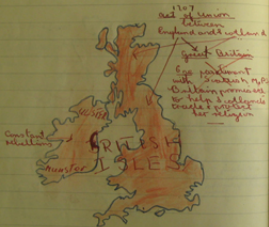 1707
act of Union
between
England and Scotland
Great Britain
Egg parliment
with Scottish M.Ps
Britain promised
to help Scotland
trade & protect
her religion
Ulster
Constant
Rebellions
BRITISH
ISLES
munster